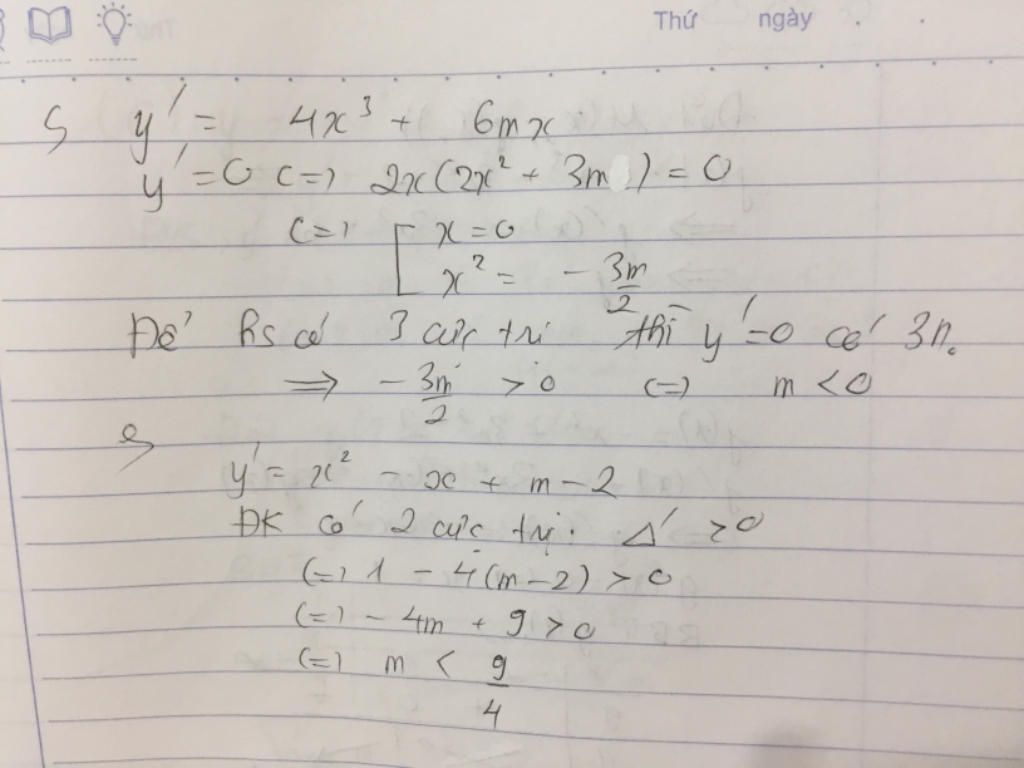 Thứ ngày . .
5 y' = 4x³ + 6mx
y' = 0 (=) 2x(2x² + 3m) = 0
(=) [ x = 0
x² = - 3m/2
Để hs có 3 cực trị thì y' = 0 có 3n.
=> - 3m/2 > 0 (=) m < 0
y' = x² - x + m - 2
ĐK có 2 cực trị: Δ' > 0
(=) 1 - 4(m-2) > 0
(=) - 4m + 9 > 0
(=) m < 9/4